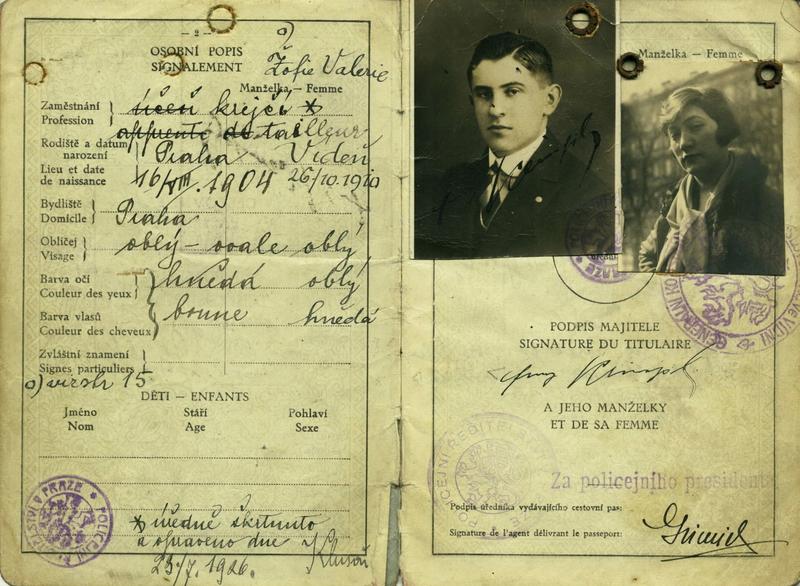 — 2 —
OSOBNÍ POPIS
SIGNALEMENT
Žofie Valerie
Manželka — Femme
Zaměstnání
Profession
krejčí x
tailleur
Rodiště a datum
narození
Lieu et date
de naissance
Praha Vídeň
16/VIII. 1904 26/10.1910
Bydliště
Domicile
Praha
Obličej
Visage
oblý – ovale oblý
Barva očí
Couleur des yeux
hnědá oblý
Barva vlasů
Couleur des cheveux
brune hnědá
Zvláštní znamení
Signes particuliers
o) viz str 15
DĚTI — ENFANTS
Jméno Stáří Pohlaví
Nom Age Sexe
x úředně škrtnuto
a opraveno dne
23/7. 1926.
POLICEJNÍ ŘEDITELSTVÍ V PRAZE
Manželka — Femme
PODPIS MAJITELE
SIGNATURE DU TITULAIRE
A JEHO MANŽELKY
ET DE SA FEMME
Za policejního president
Podpis úředníka vydávajícího cestovní pas:
Signature de l'agent délivrant le passeport: